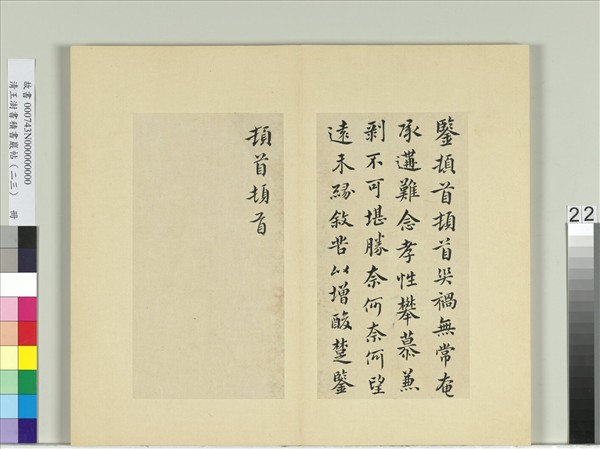 鑒頓首頓首災禍無常奄
承遘難念孝性攀慕兼
剝不可堪勝奈何奈何望
遠未緣敘苦以增酸楚鑒
頓首頓首
故書 000743N000000000
清王澍書積書巖帖(二三) 冊
22